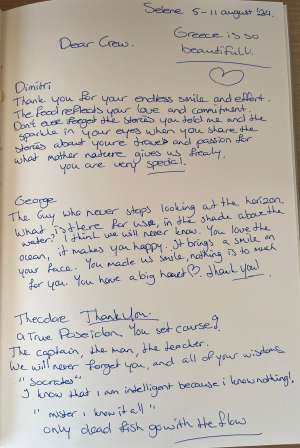 Selene 5-11 august '24.
Greece is so
beautifull.
Dear Crew.
Dimitri
Thank you for your endless smile and effort.
The food reflects your love and commitment.
Don't ever forget the stories you told me and the
sparkle in your eyes when you share the
stories about youre travels and passion for
what mother nature gives us freely.
you are very special.
George
The Guy who never stops looking at the horizon.
What is there for us, in the shade above the
water? I think we will never know. You love the
ocean, it makes you happy. It brings a smile on
your face. You made us smile, nothing is to much
for you. You have a big heart thank you!
Theodore Thank you.
a True Poseidon. You set course!
The captain, the man, the teacher.
We will never forget you, and all of your wisdoms
"Socrates"
I know that I am intelligent because i know nothing!
"mister i know it all"
only dead fish go with the flow